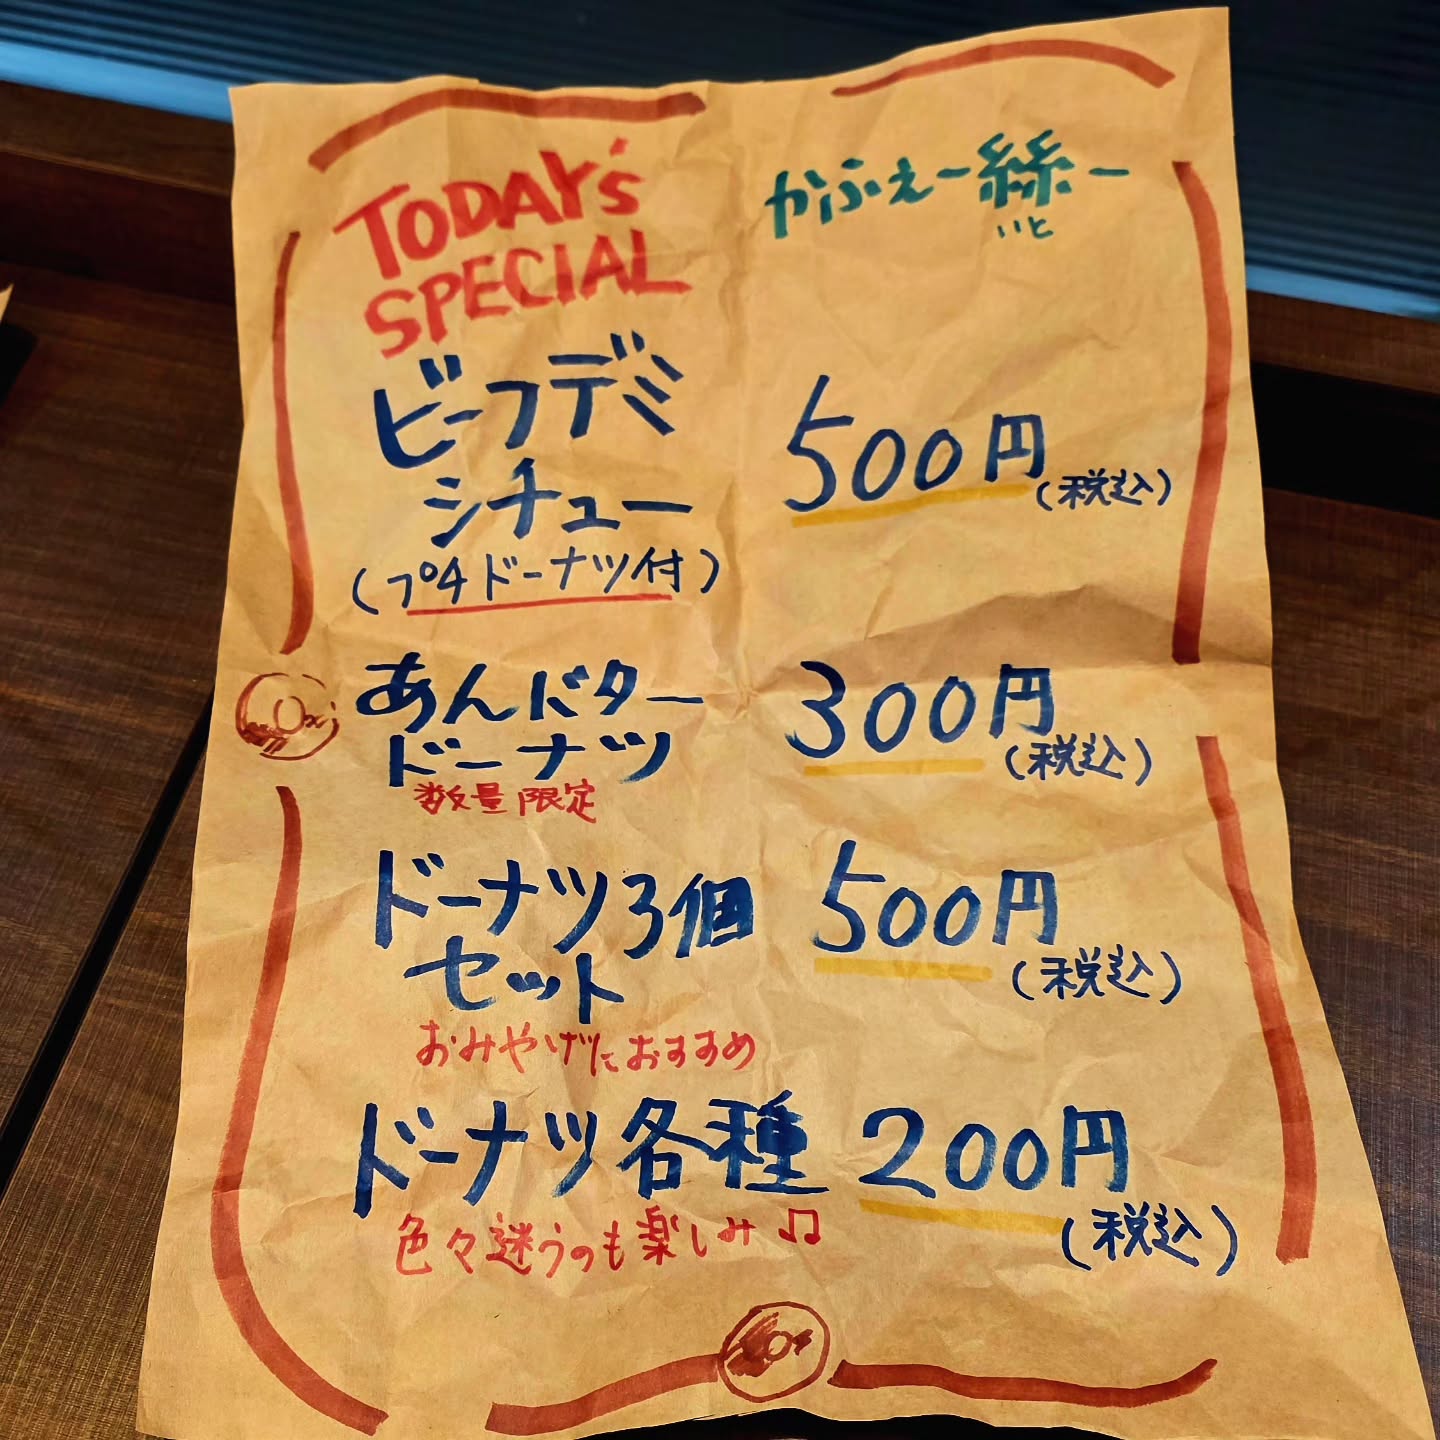 TODAY's
SPECIAL
かふぇー絲ー
いと
ビーフデミ
シチュー
500円
(税込)
(プチドーナツ付)
あんバター
ドーナツ
300円
(税込)
数量限定
ドーナツ3個
セット
500円
(税込)
おみやげにおすすめ
ドーナツ各種 200円
(税込)
色々迷うのも楽しみ♫